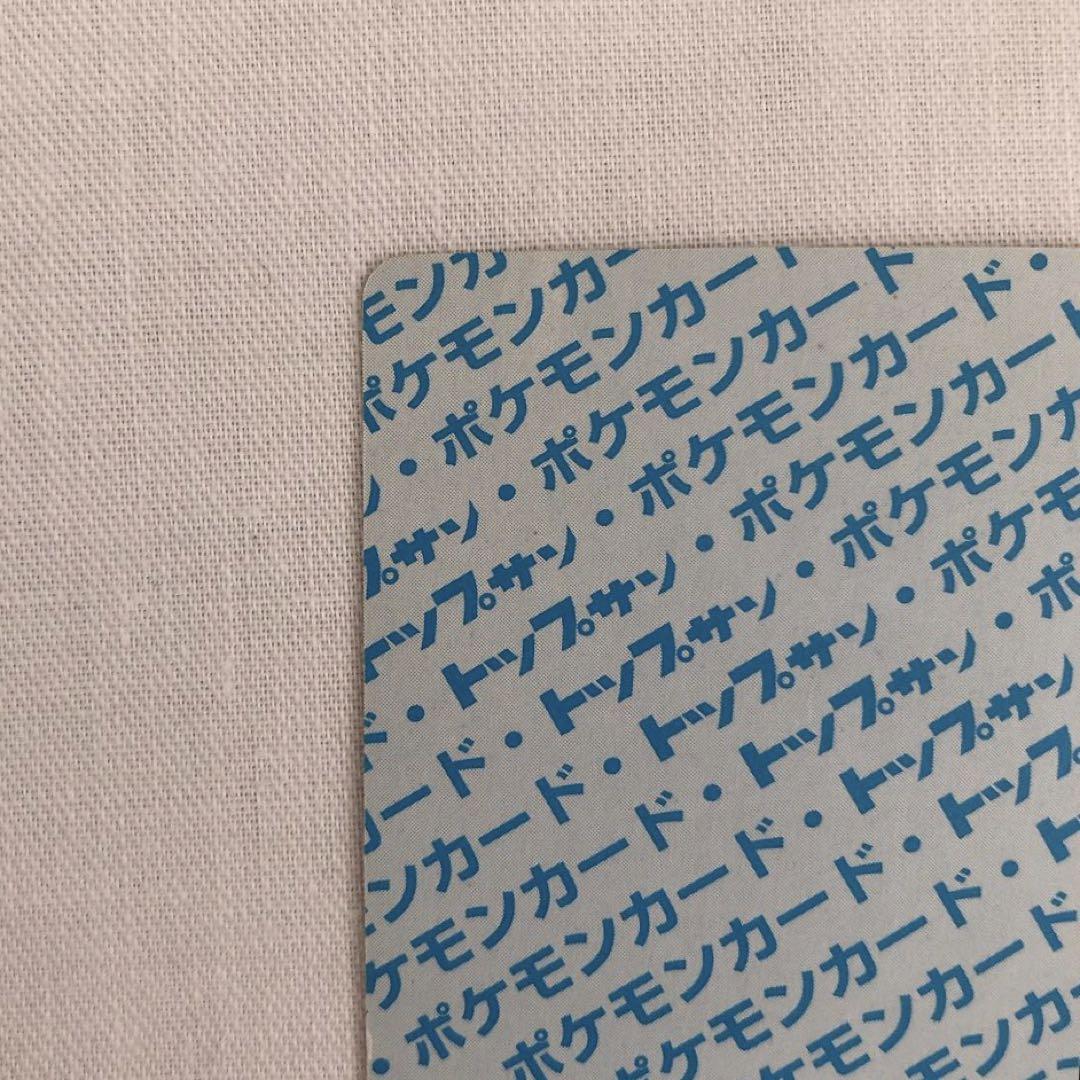 モンカ
ポケモンカー
・ポケモンカー
プサン・ポケモンカード
トップサン・ポケモンカード・
・トップサン・ポケモンカード
カード・トップサン・ポケモンカ
ンカード・トップサン・ポケモ
ケモンカード・トップサン・ポ
・ポケモンカード・トップサン
ポケモンカード・トップ
ポケモンカード・ト
ケモンカード
モンカ